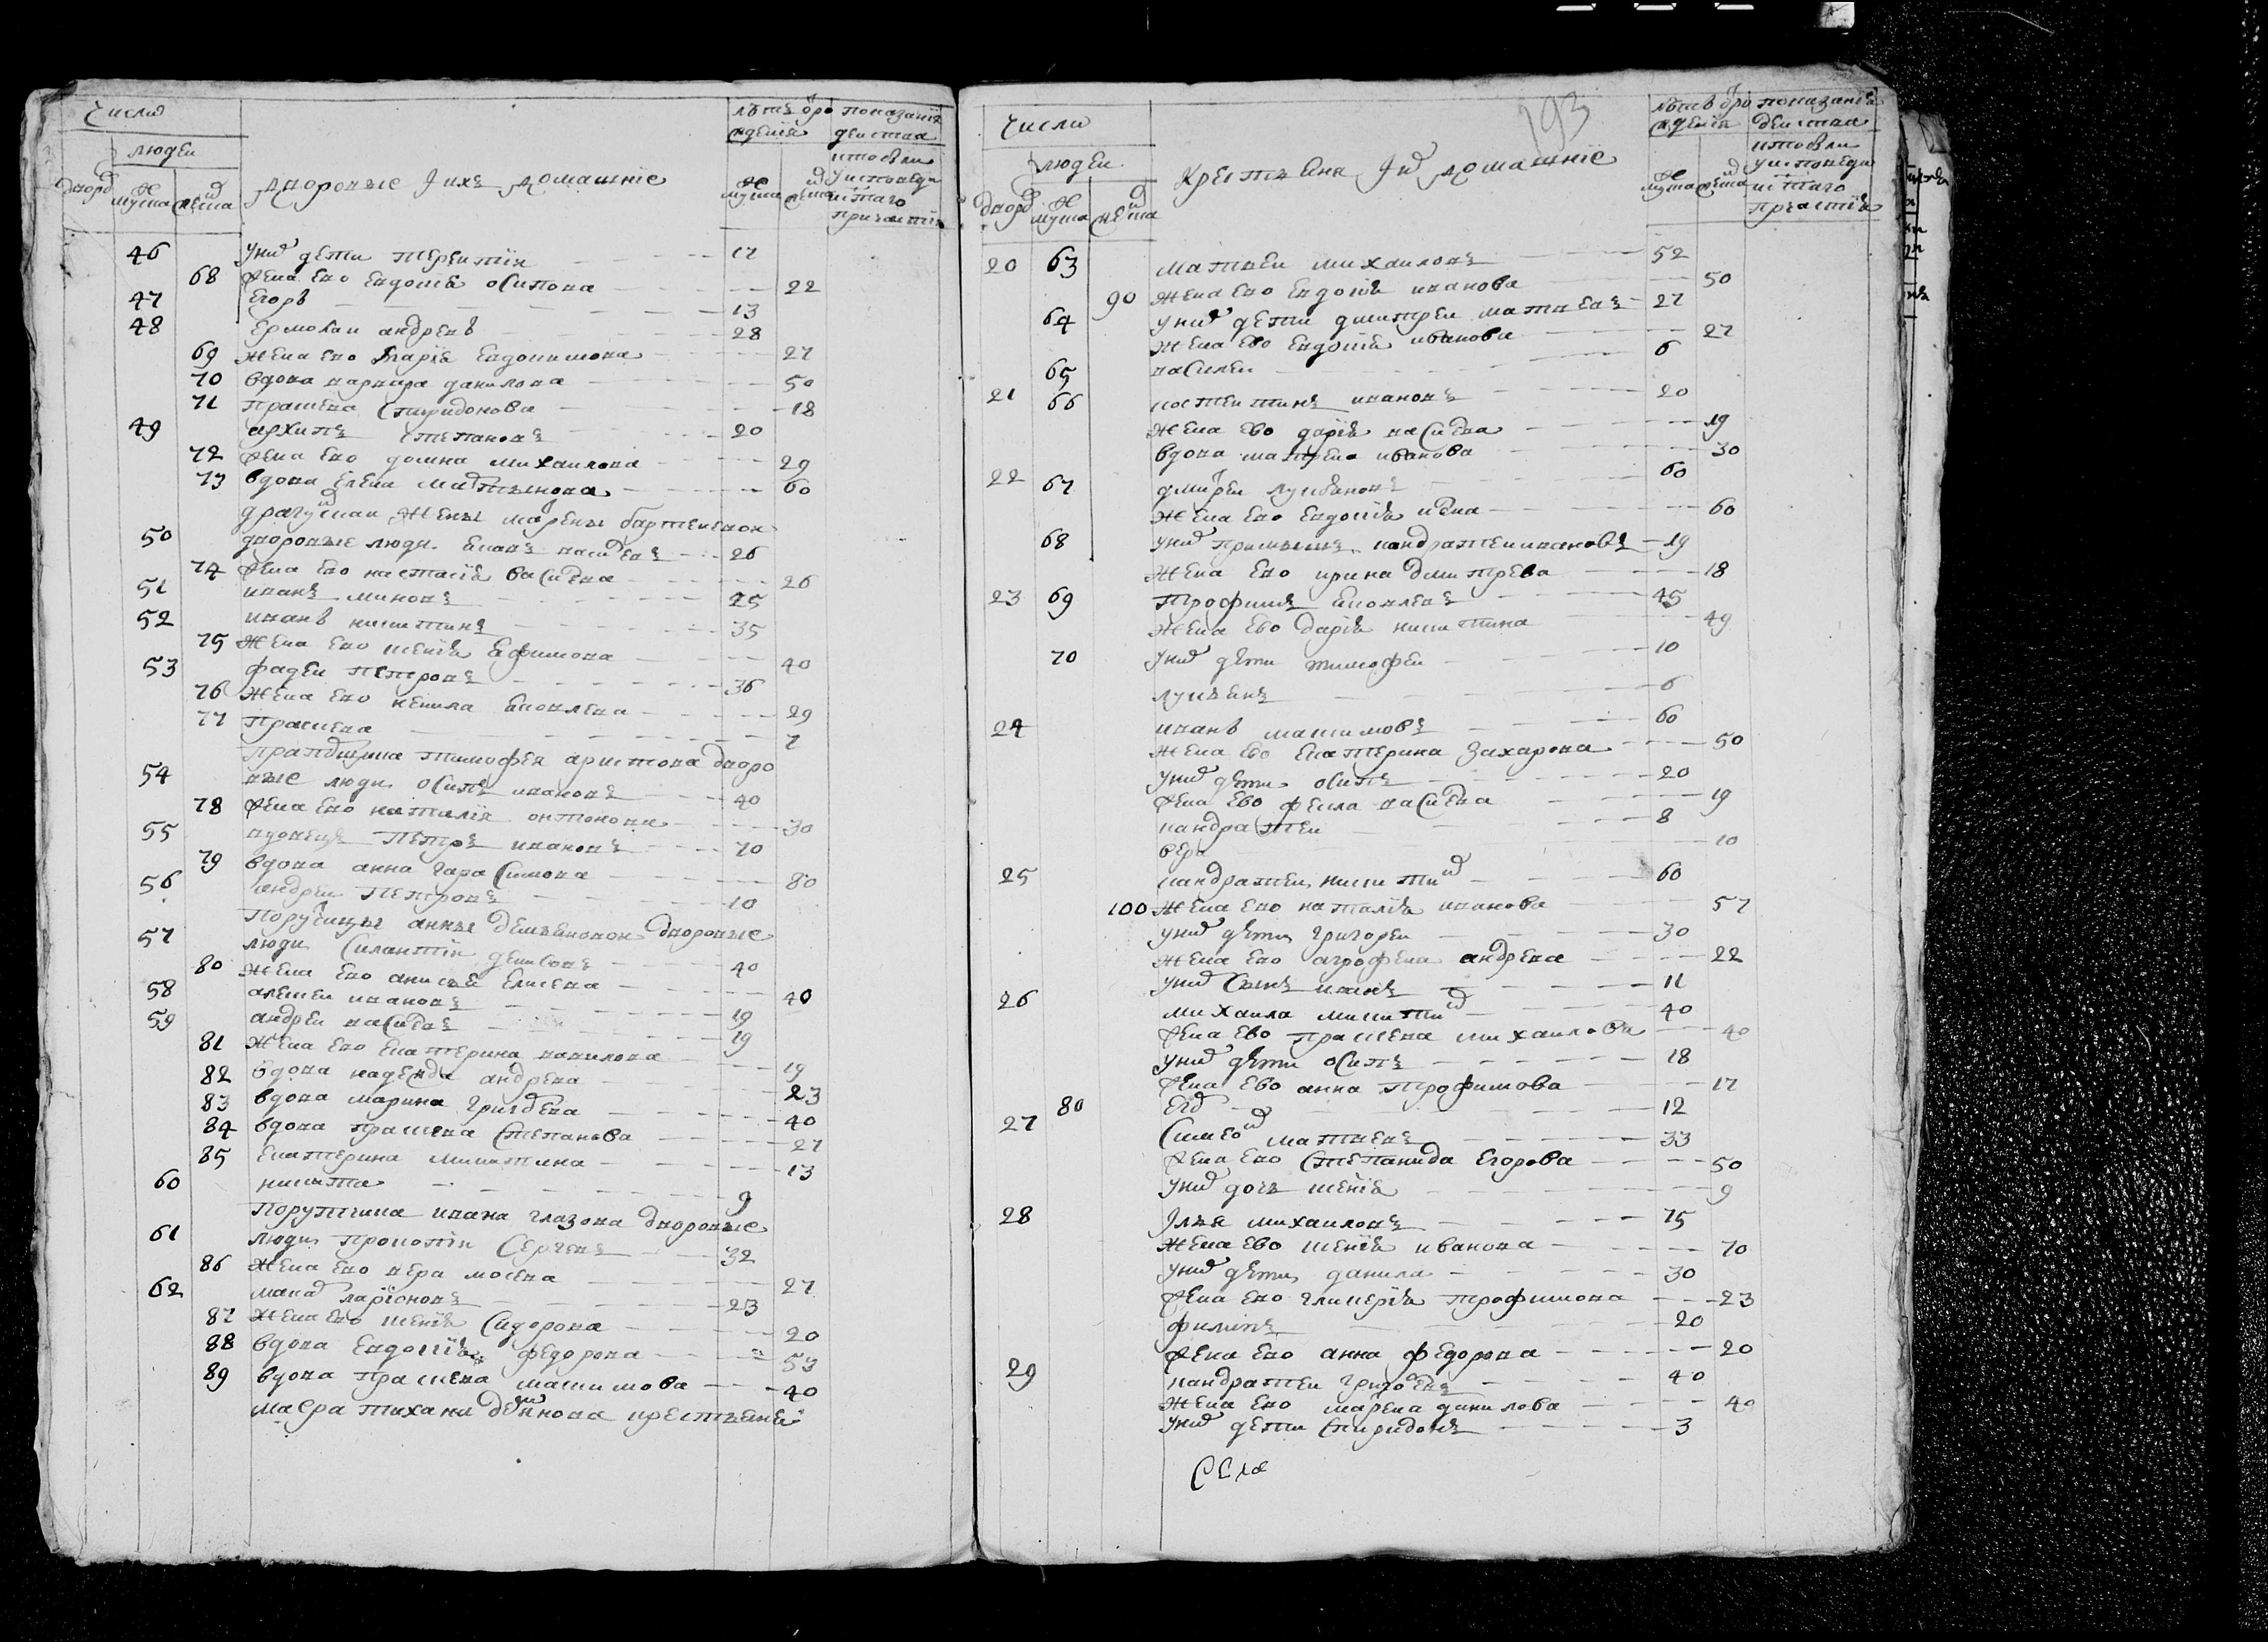 Число
людеи
дворов
мужска
женска
дворовые и ихъ домашние
лѣтъ от ро
ждения
мужска
женска
показание
действа
кто был
у исповеди
и с̃таго
причастия
46 у них дети терентии 17
68 жена ево евдокия осипова 22
47 егоръ 13
48 ермолаи андреевъ 28
69 жена ево мария евдокимова 27
70 вдова варвара данилова 50
71 прасковя спиридонова 18
49 архипъ степановъ 20
72 жена ево домна михаилова 29
73 вдова елена мартынова 60
жены марены
50 дворовые люди василевъ 26
74 жена ево настасия василева 26
51 иванъ миновъ 25
52 иванъ никитинъ 35
75 жена ево ксения ефимова 40
53 фадеи петровъ 36
76 жена ево ненила яковлева 29
77 прасковя 7
прапорщика тимофея аристова дворо
54 вые люди осипъ ивановъ 40
78 жена ево наталия онтонова 30
55 вдовецъ петръ ивановъ 70
79 вдова анна гарасимова 80
56 андреи петровъ 10
порутчицы анны демьяновои дворовые
57 люди силантии денисовъ 40
80 жена ево анисья елисева 40
58 алексеи ивановъ 19
59 андреи василевъ 19
81 жена ево екатерина вавилова 19
82 вдова надежда андрева 23
83 вдова марина григорева 40
84 вдова прасковя степанова 27
85 екатерина никитина 13
60 никита 9
порутчика ивана глазова дворовые
61 люди прокопии сергевъ 32
86 жена ево вера мосева 27
62 макар лариѡновъ 23
87 жена ево ксения сидорова 20
88 вдова евдокия федорова 53
89 вдова прасковя максимова 40
маеора тихана крестьяне
193
Число
людеи
дворов
мужска
женска
крестьяня и их домашние
лѣтъ от ро
ждения
мужска
женска
показания
действа
кто были
у исповеди
и с̃таго
причастия
20 63 матвеи михаиловъ 52
90 жена ево евдокия иванова 50
64 у них дети дмитреи матвеевъ 27
жена ево евдокия иванова 27
65 василеи 6
21 66 костентинъ ивановъ 20
жена ево дария василева 19
вдова матрена иванова 30
22 67 дмитреи лукьяновъ 60
жена ево евдокия 60
68 у них кандратеи ивановъ 19
жена ево ирина дмитрева 18
23 69 трофимъ яковлевъ 45
жена ево дария никитина 49
70 у них дети тимофеи 10
лукьянъ 6
24 иванъ максимовъ 60
жена ево екатерина захарова 50
у них дети осипъ 20
жена ево фекла василева 19
кандратеи 8
вера 10
25 кандратеи никитин 60
100 жена ево наталия иванова 57
у них дети григореи 30
жена ево агрофена андрева 22
у них сынъ 11
26 михаила никитин 40
жена ево прасковя михаилова 40
у них дети осипъ 18
жена ево анна трофимова 17
80 егор 12
27 симеон матвевъ 33
жена ево степанида егорова 50
у них дочь ксения 9
28 илья михаиловъ 75
жена ево ксения иванова 70
у них дети данила 30
жена ево гликерия трофимова 23
филипъ 20
жена ево анна федорова 20
29 кандратеи григоревъ 40
жена ево марена данилова 40
у них дети спиридонъ 3
села